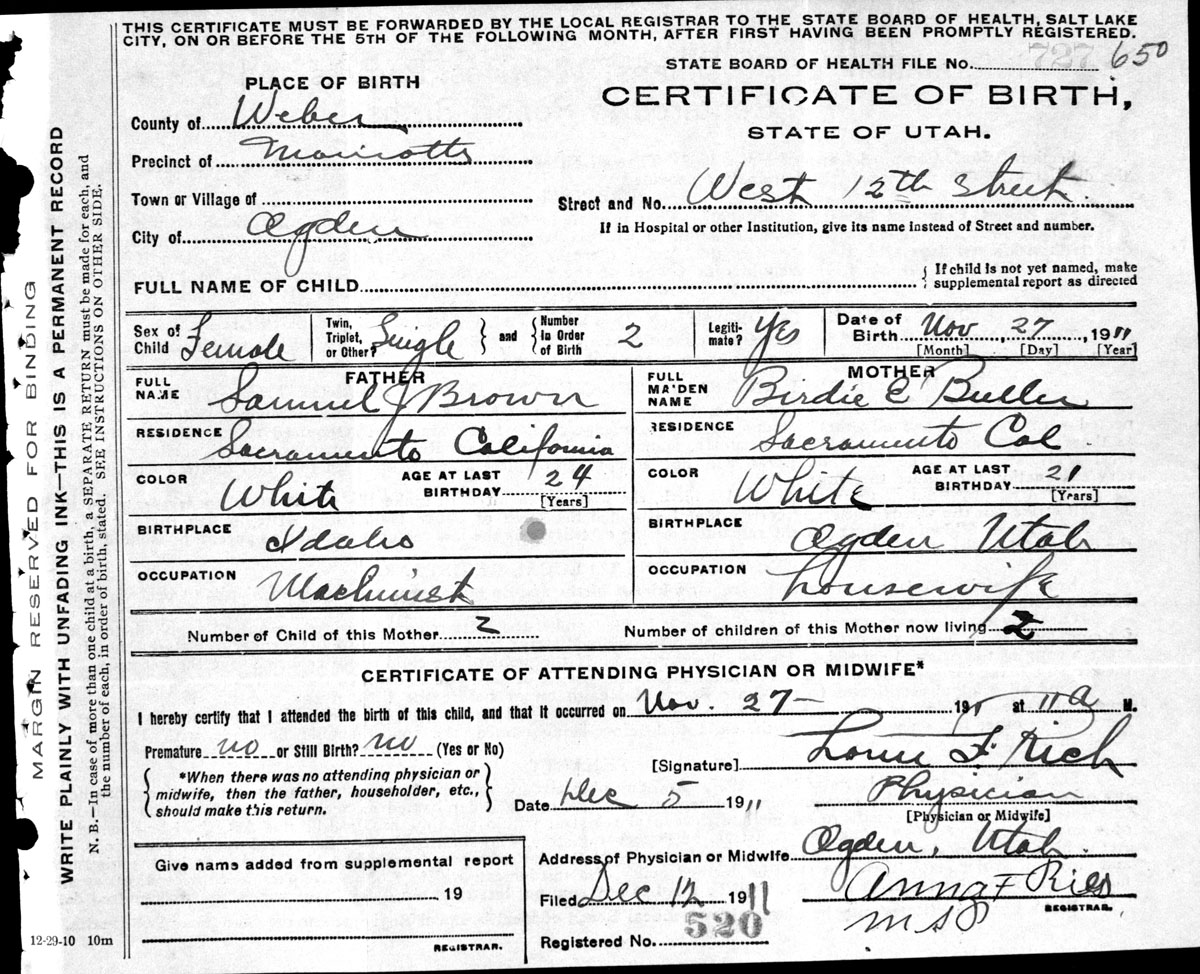 THIS CERTIFICATE MUST BE FORWARDED BY THE LOCAL REGISTRAR TO THE STATE BOARD OF HEALTH, SALT LAKE
CITY, ON OR BEFORE THE 5TH OF THE FOLLOWING MONTH, AFTER FIRST HAVING BEEN PROMPTLY REGISTERED.
STATE BOARD OF HEALTH FILE No. 727 650
PLACE OF BIRTH
CERTIFICATE OF BIRTH,
STATE OF UTAH.
County of Weber
Precinct of Marriotts
Town or Village of
City of Ogden
Street and No. West 12th Street.
If in Hospital or other Institution, give its name instead of Street and number.
FULL NAME OF CHILD
{ If child is not yet named, make
supplemental report as directed
Sex of Child Female
Twin, Triplet, or Other? Single } and { Number in Order of Birth 2
Legitimate? Yes
Date of Birth Nov, 27, 1911
[Month] [Day] [Year]
FATHER
FULL NAME Samuel J Brown
RESIDENCE Sacramento California
COLOR White
AGE AT LAST BIRTHDAY 24
[Years]
BIRTHPLACE Idaho
OCCUPATION Machinist
MOTHER
FULL MAIDEN NAME Birdie E
RESIDENCE Sacramento Cal
COLOR White
AGE AT LAST BIRTHDAY 21
[Years]
BIRTHPLACE Ogden Utah
OCCUPATION housewife
Number of Child of this Mother 2
Number of children of this Mother now living 2
CERTIFICATE OF ATTENDING PHYSICIAN OR MIDWIFE*
I hereby certify that I attended the birth of this child, and that it occurred on Nov. 27— 191 at 11 a M.
Premature no or Still Birth? no (Yes or No)
{ *When there was no attending physician or
midwife, then the father, householder, etc.,
should make this return. }
[Signature] F. Rich
Date Dec 5 1911
Physician
[Physician or Midwife]
Address of Physician or Midwife Ogden, Utah.
Filed Dec 12 1911
Anna F Ries
REGISTRAR.
Registered No. 520
Give name added from supplemental report
, 19
REGISTRAR.
12-29-10 10m
MARGIN RESERVED FOR BINDING
WRITE PLAINLY WITH UNFADING INK—THIS IS A PERMANENT RECORD
N. B.—In case of more than one child at a birth, a SEPARATE RETURN must be made for each, and
the number of each, in order of birth, stated. SEE INSTRUCTIONS ON OTHER SIDE.